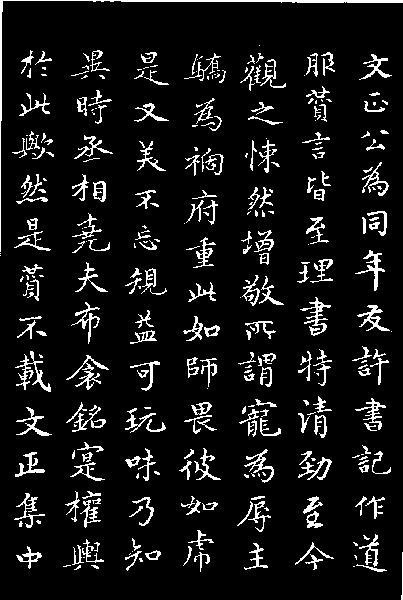 文正公為同年友許書記作道
服贊言皆至理書特清勁至今
觀之悚然增敬所謂寵為辱主
驕為禍府重此如師畏彼如虎
是又美不忘規益可玩味乃知
異時丞相堯夫布衾銘寔權輿
於此歟然是贊不載文正集中